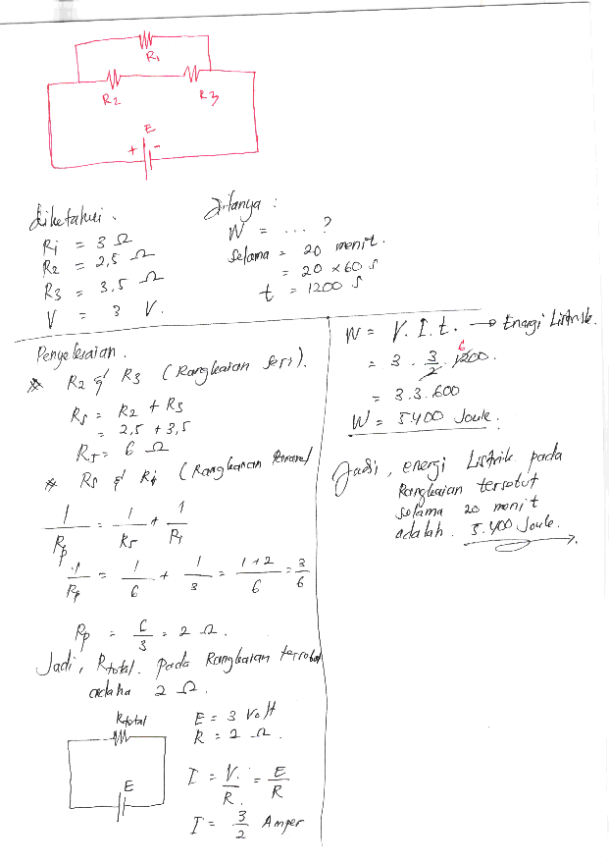 R1
R2
R3
E
+ -
diketahui.
R1 = 3 Ω
R2 = 2,5 Ω
R3 = 3.5 Ω
V = 3 V.
Ditanya :
W = .... ?
Selama = 20 menit.
= 20 x 60 s
t = 1200 s
Penyelesaian.
* R2 & R3 (Rangkaian Seri).
Rs = R2 + R3
= 2,5 + 3,5
Rs = 6 Ω
* Rs & R1 (Rangkaian
1/Rp = 1/Rs + 1/R1
1/Rp = 1/6 + 1/3 = 1+2/6 = 3/6
Rp = 6/3 = 2 Ω.
Jadi, Rtotal. pada Rangkaian tersebut
adalha 2 Ω.
Rtotal
E
E = 3 Volt
R = 2 Ω.
I = V/R = E/R
I = 3/2 Amper
W = V. I. t. → Energi Listrik.
= 3 . 3/2 . 1200.
6
= 3.3.600
W = 5400 Joule.
Jadi, energi Listrik pada
Rangkaian tersebut
selama 20 menit
adalah. 5.400 Joule.